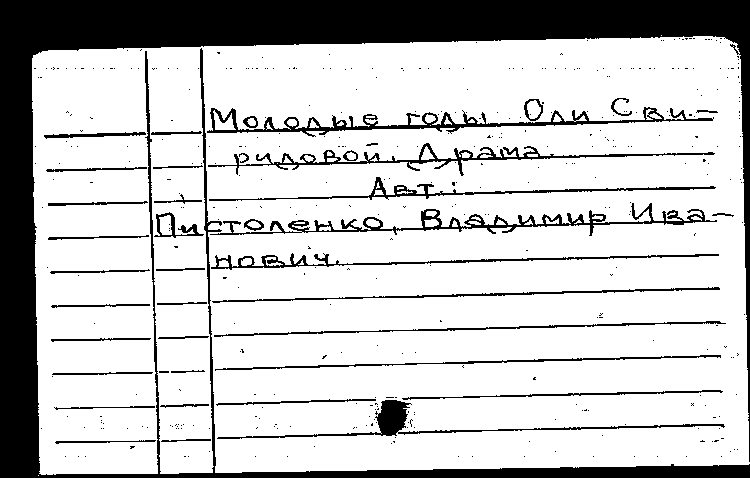 Молодые годы Оли Сви-
ридовой. Драма.
Авт.:
Пистоленко, Владимир Ива-
нович.